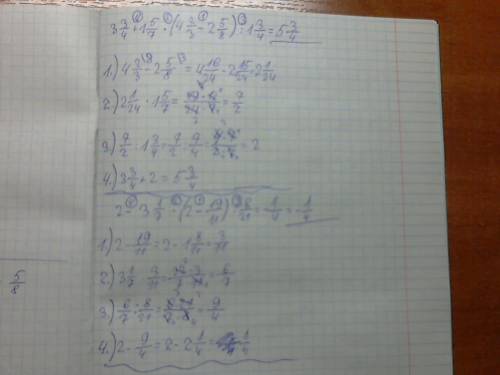 3 3/4 + 1 5/7 · (4 2/3 - 2 5/8) : 1 3/4 = 5 3/4
1.) 4 2/3 - 2 5/8 = 4 16/24 - 2 15/24 = 2 1/24
2.) 2 1/24 · 1 5/7 = 49·12/24·7 = 7/2
3.) 7/2 : 1 3/4 = 7/2 : 7/4 = 7·4/2·7 = 2
4.) 3 3/4 + 2 = 5 3/4
2 - 3 1/7 · (2 - 19/11) : 8/21 = - 1/4 = - 1/4
1.) 2 - 19/11 = 2 - 1 8/11 = 3/11
2.) 3 1/7 · 3/11 = 22·3/7·11 = 6/7
3.) 6/7 : 8/21 = 6·21/7·8 = 9/4
4.) 2 - 9/4 = 2 - 2 1/4 = - 1/4
5/8